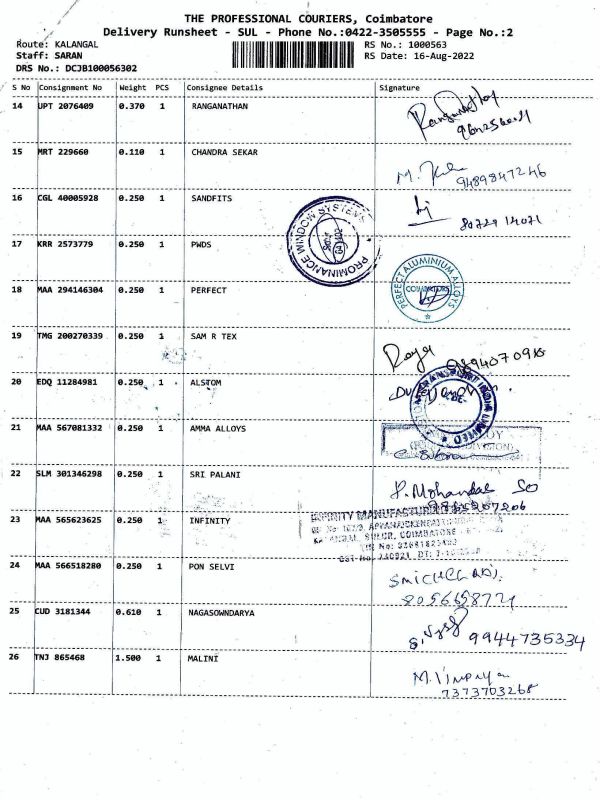 THE PROFESSIONAL COURIERS, Coimbatore
Delivery Runsheet - SUL - Phone No.:0422-3505555 - Page No.:2
Route: KALANGAL
RS No.: 1000563
Staff: SARAN
RS Date: 16-Aug-2022
DRS No.: DCJB100056302
S No Consignment No Weight PCS Consignee Details Signature
14 UPT 2076409 0.370 1 RANGANATHAN
15 MRT 229660 0.110 1 CHANDRA SEKAR
M.
9489847246
16 CGL 40005928 0.250 1 SANDFITS
80729 14071
PROMINANCE WINDOW SYSTEMS
17 KRR 2573779 0.250 1 PWDS
PERFECT ALUMINIUM ALLOYS
COIMBATORE
18 MAA 294146304 0.250 1 PERFECT
19 TMG 200270339 0.250 1 SAM R TEX
20 EDQ 11284981 0.250 1 ALSTOM
INDIA LIMITED
21 MAA 567081332 0.250 1 AMMA ALLOYS
22 SLM 301346298 0.250 1 SRI PALANI
P. Mohandas SO
23 MAA 565623625 0.250 1 INFINITY
INFINITY MANUFACTURING
SULUR, COIMBATORE
24 MAA 566518280 0.250 1 PON SELVI
25 CUD 3181344 0.610 1 NAGASOWNDARYA
9944735334
26 TNJ 865468 1.500 1 MALINI
7373703268